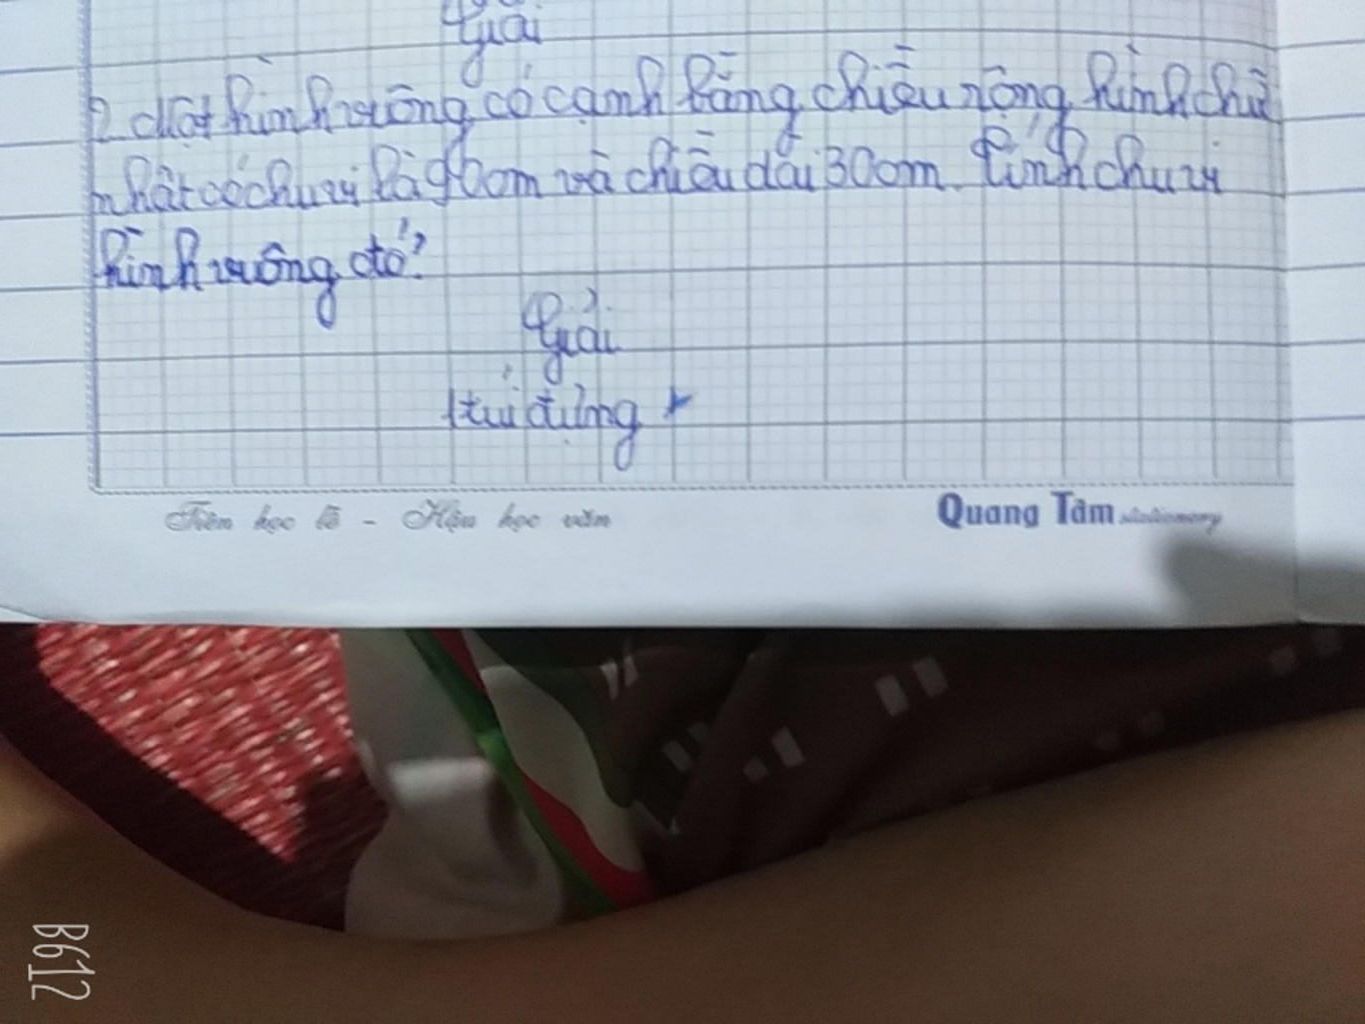 Giải
2. Một hình vuông có cạnh bằng chiều rộng hình chữ
nhật có chu vi là 90cm và chiều dài 30cm. Tính chu vi
hình vuông đó?
Giải
1 túi đựng
Tiên học lễ - Hậu học văn
Quang Tâm stationery
B612